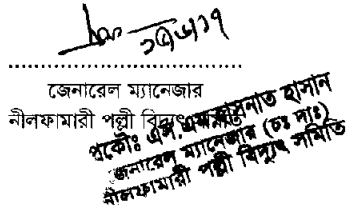 ২৭/৬/১৭
জেনারেল ম্যানেজার
নীলফামারী পল্লী বিদ্যুৎ সমিতি
প্রকৌঃ এস.এম হাসনাত হাসান
জেনারেল ম্যানেজার (চঃ দাঃ)
নীলফামারী পল্লী বিদ্যুৎ সমিতি